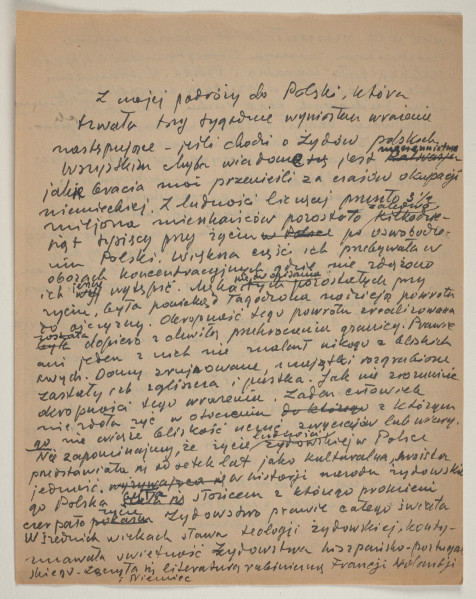 Z mojej podróży do Polski, która
trwała trzy tygodnie wyniosłam wrażenie
następujące – jeśli chodzi o Żydów polskich
Wszystkim chyba wiadome jest męczeństwo
jakie bracia moi przenieśli za czasów okupacji
niemieckiej. Z ludności liczącej przeszło 3½
miljona mieszkańców pozostało zaledwie kilkadzie-
siąt tysięcy przy życiu po uswobodze-
niu Polski. Większa część ich przebywała w
obozach koncentracyjnych gdzie nie zdążono
ich wytępić. pozostałych przy
życiu, była powrotu
do ojczyzny. Okropność tego powrotu zrealizowana
została dopiero z chwilą przekroczenia granicy. Prawie
ani jeden z nich nie znalazł nikogo z bliskich
swych. Domy zrujnowane, majątki rozgrabione
zastały ich zgliszcza i pustka. Jak nie zrozumieć
okropności tego wrażenia. Żaden człowiek
nie zdoła żyć w otoczeniu do którego z którym
go nie wiąże bliskość uczuć, zwyczajów lub wiary.
Nie zapominajmy, że życie ludności żydowskiej w Polsce
przedstawiało się od setek lat jako kulturalna,
jedność, w historji narodu żydowskie
go Polska była słońcem z którego promieni
czerpało życie Żydowstwo prawie całego świata
W średnich wiekach sława teologji żydowskiej, konty-
nuowała świetność Żydowstwa hiszpańsko-portugal
skiego. literatura rabiniczna Francji Holandji
i Niemiec